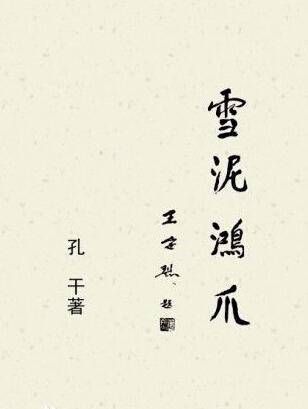 雪泥鴻爪
王世襄 题
孔干著